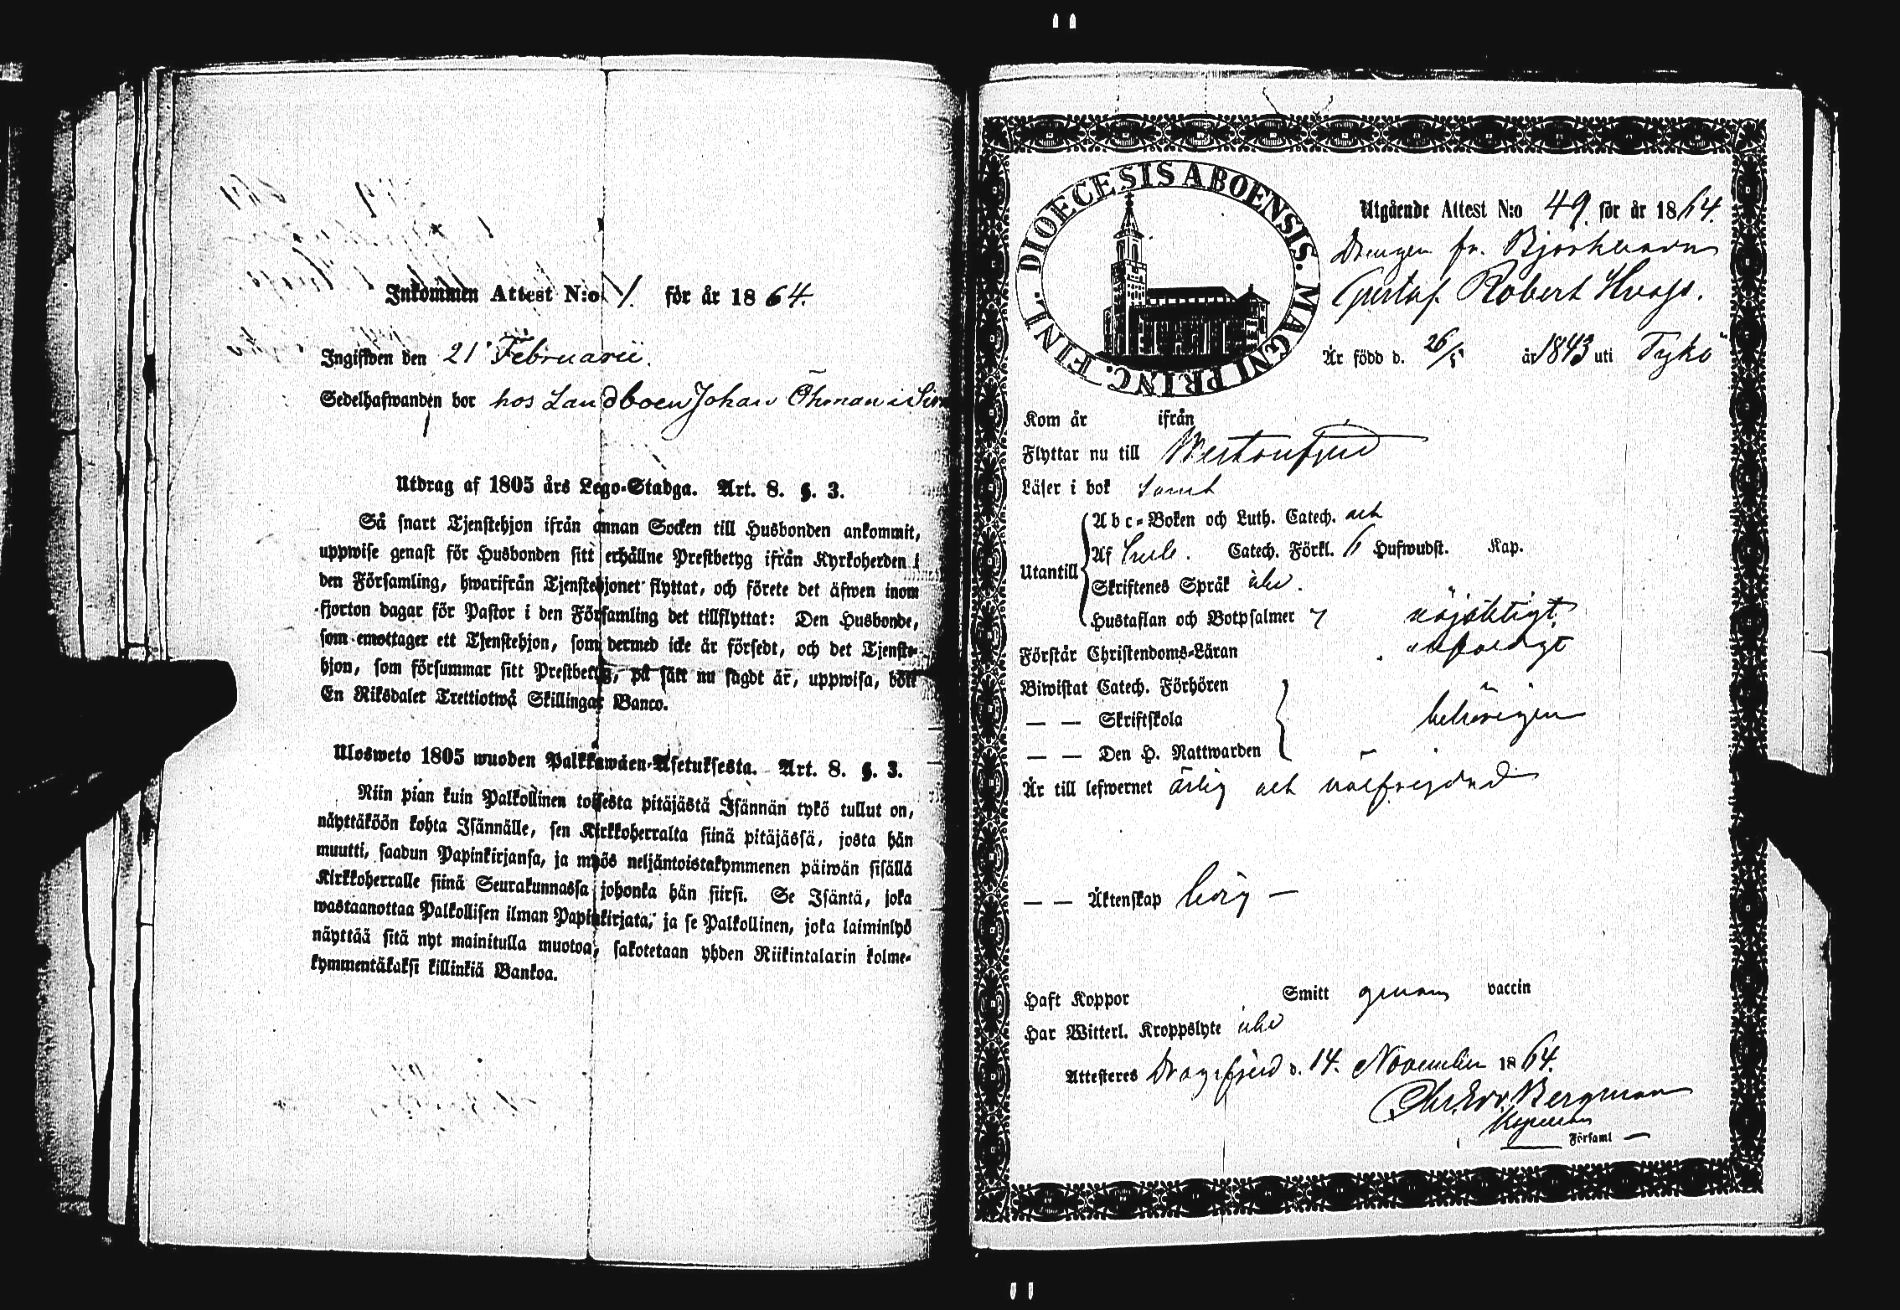 Inkommen Attest N:o 1. för år 1864.
Ingifwen den 21 Februarii.
Sedelhafwanden bor hos Landboen Johan Öhman i
Utdrag af 1805 års Lego-Stadga. Art. 8. §. 3.
Så snart Tjenstehjon ifrån annan Socken till Husbonden ankommit,
uppwise genast för Husbonden sitt erhållne Prestbetyg ifrån Kyrkoherden i
den Församling, hwarifrån Tjenstehjonet flyttat, och förete det äfwen inom
fjorton dagar för Pastor i den Församling det tillflyttat: Den Husbonde,
som emottager ett Tjenstehjon, som dermed icke är försedt, och det Tjenste-
hjon, som försummar sitt Prestbetyg, på sätt nu sagdt är, uppwisa, böte
En Riksdaler Trettiotwå Skillingar Banco.
Ulosweto 1805 wuoden Palkkawäen-Asetuksesta. Art. 8. §. 3.
Niin pian kuin Palkollinen toisesta pitäjästä Isännän tykö tullut on,
näyttäköön kohta Isännälle, sen Kirkkoherralta siinä pitäjässä, josta hän
muutti, saadun Papinkirjansa, ja myös neljäntoistakymmenen päiwän sisällä
Kirkkoherralle siinä Seurakunnassa johonka hän siirsi. Se Isäntä, joka
wastaanottaa Palkollisen ilman Papinkirjata, ja se Palkollinen, joka laiminlyö
näyttää sitä nyt mainitulla muotoa, sakotetaan yhden Riikintalarin kolme-
kymmentäkaksi killinkiä Bankoa.
DIOECESIS ABOENSIS. MAGNI PRINC. FINL.
Utgående Attest N:o 49. för år 1864.
Drengen fr.
Gustaf Robert
Är född d. 26/5 år 1843 uti Tykö
Kom år ifrån
Flyttar nu till Westanfjerd
Läser i bok samt
Utantill
Abc-Boken och Luth. Catech. och
Af Catech. Förkl. 6 Hufwudst. Kap.
Skriftenes Språk
Hustaflan och Botpsalmer 7 nöjaktigt
Förstår Christendoms-Läran
Biwistat Catech. Förhören
— — Skriftskola behörigen
— — Den H. Nattwarden
Är till lefwernet ärlig och välfrejdad
— — Äktenskap ledig —
Haft Koppor Smitt genom vaccin
Har Witterl. Kroppslyte icke
Attesteres Dragsfjerd d. 14. November 1864.
Bergman
Församl —